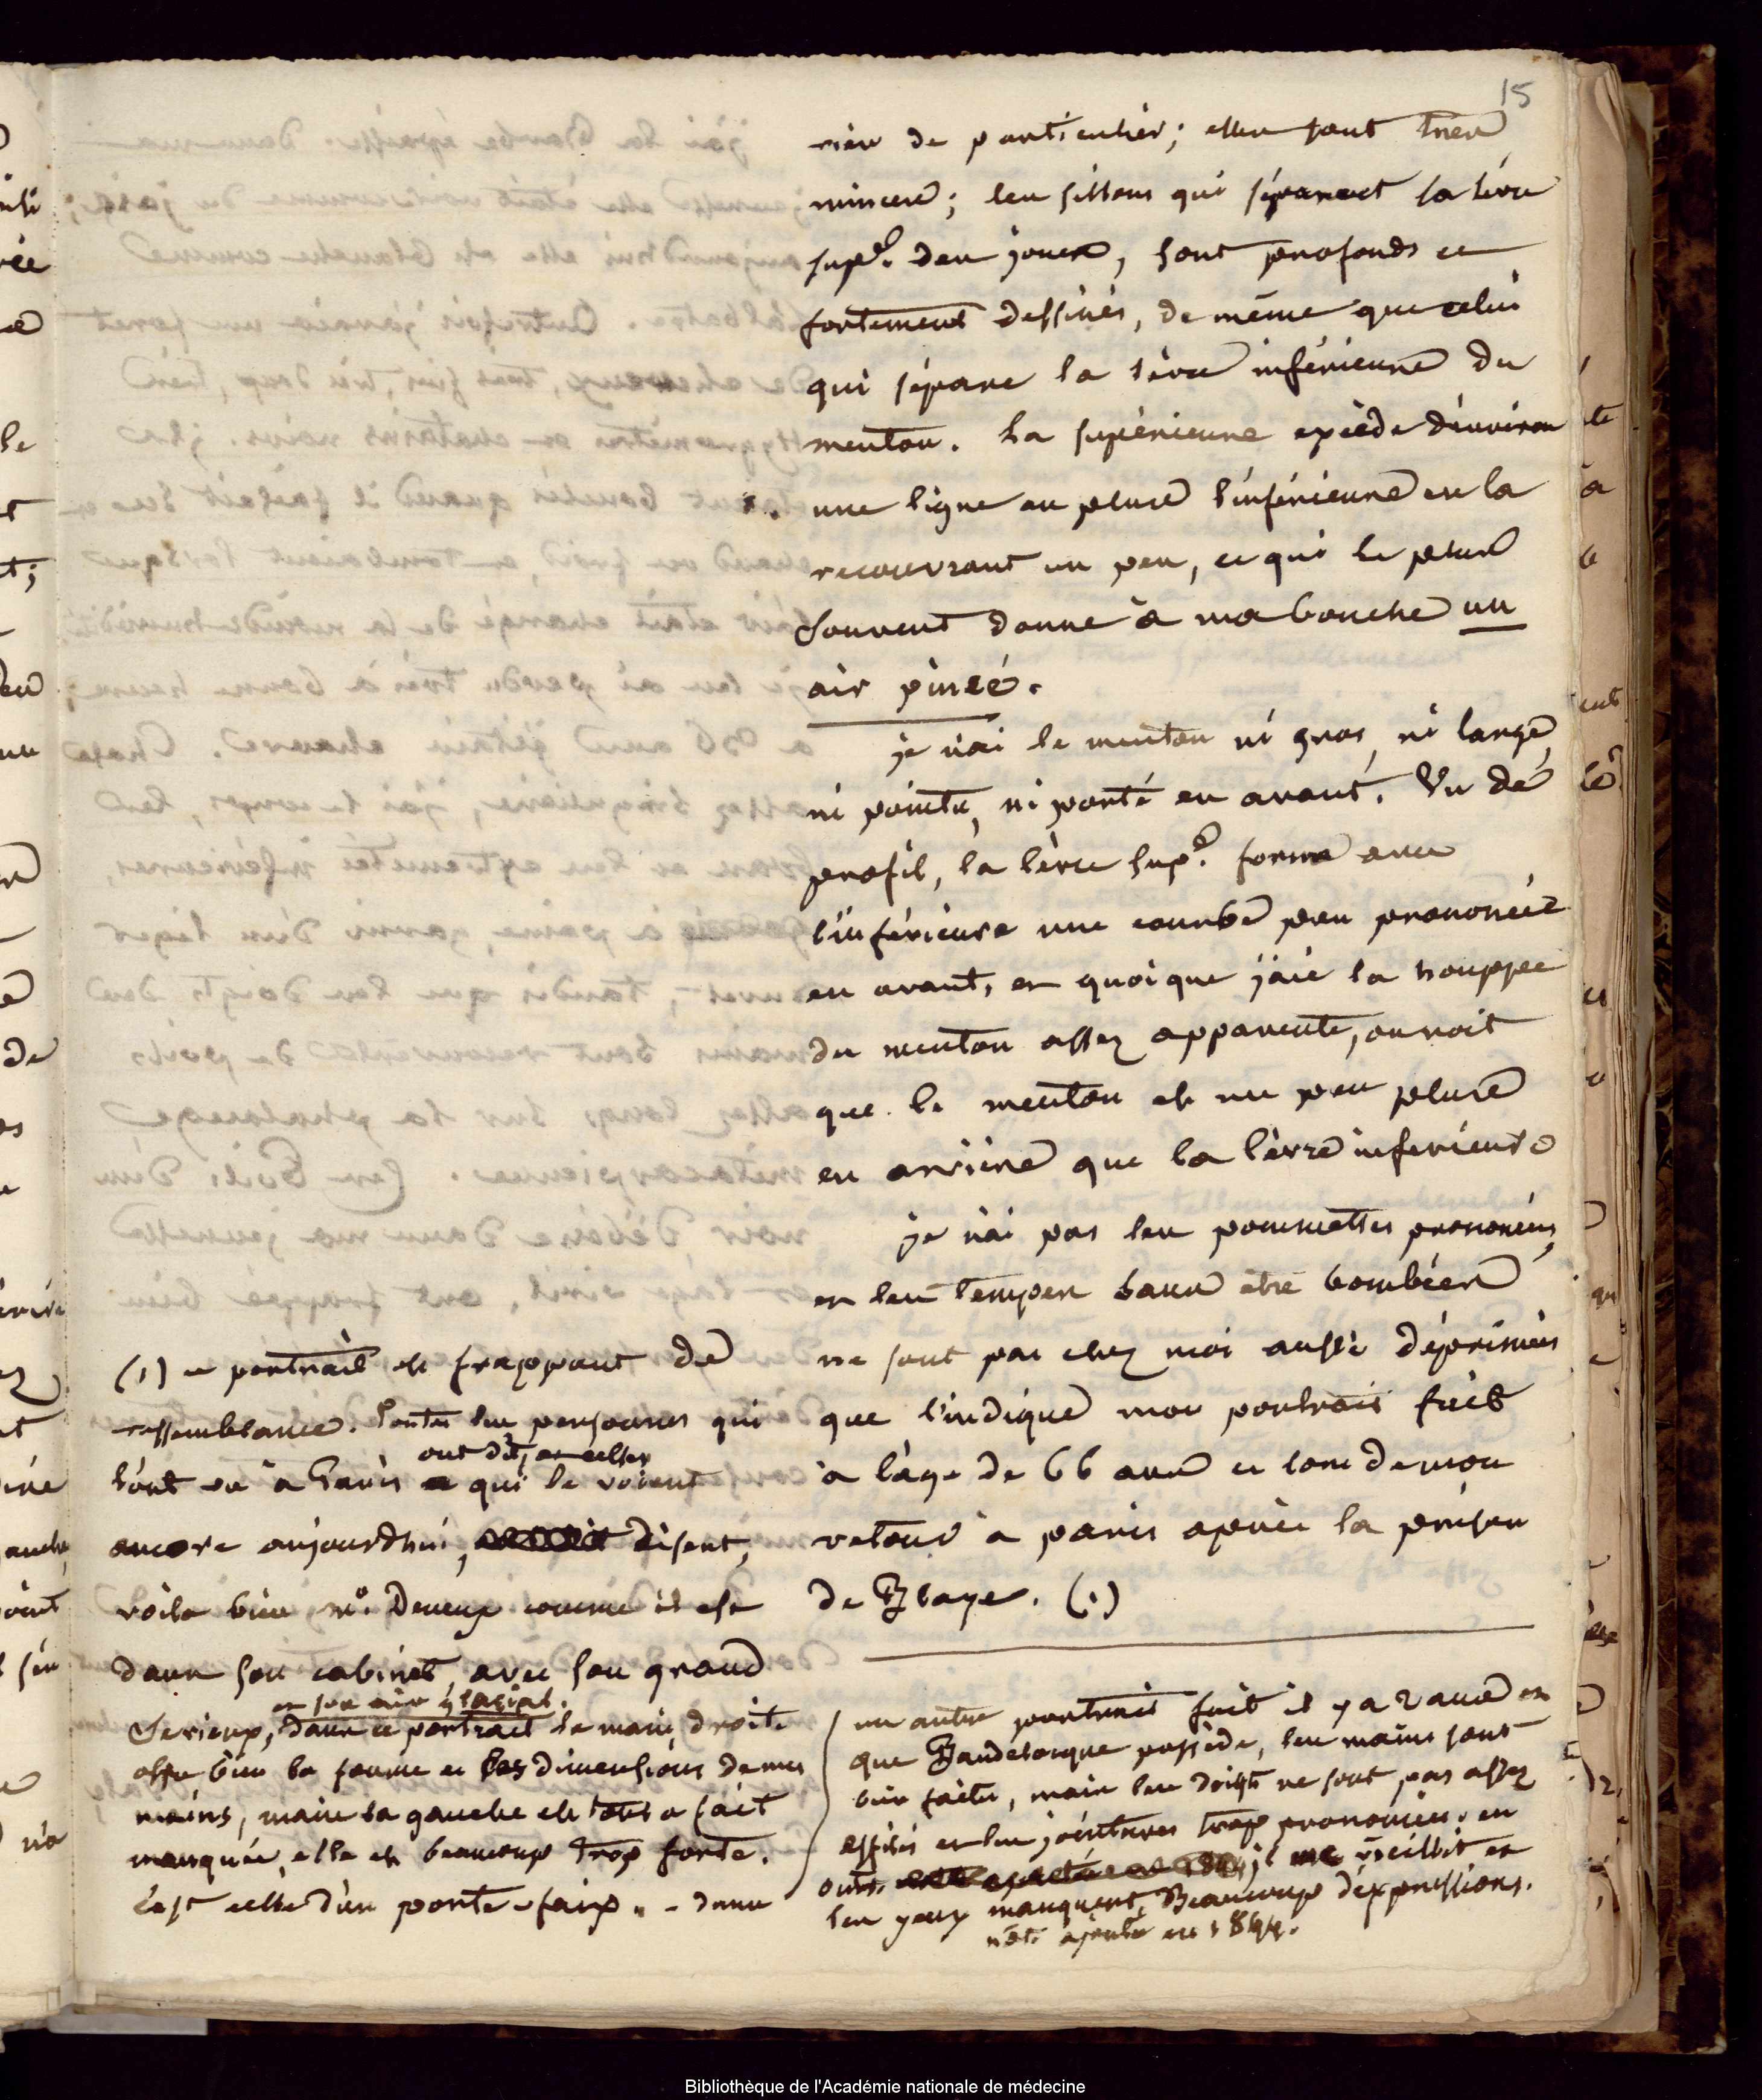 15
rien de particulier; elles sont très
minces; les sillons qui séparent la lèvre
supre. des joues, sont profonds et
fortement dessinés, de même que celui
qui sépare la lèvre inférieure du
menton. La supérieure excède d'environ
une ligne au plus l'inférieure en la
recouvrant un peu, ce qui le plus
souvent donne à ma bouche un
air pincé.
je n'ai le menton ni gros, ni large,
ni pointu, ni porté en avant. Vu de
profil, la lèvre supe. forme avec
l'inférieure une courbe peu prononcée
en avant, et quoique j'aie la houppe
du menton assez apparente, on voit
que le menton est un peu plus
en arrière que la lèvre inferieure
je n'ai pas les pommettes prononcées,
et les tempes sans être bombées
ne sont pas chez moi aussi déprimées
que l'indique mon portrait fait
à l'âge de 66 ans et lors de mon
retour à paris après la prison
de Blaye. (1)
(1) ce portrait est frappant de
ressemblance. Toutes les personnes qui
ont dit, et celles
l'ont vu à Paris qui le voient
encore aujourdhui, disent,
voila bien mr. Deneux comme il est
dans son cabinet, avec son grand
et son air glacial.
serieux, dans ce portrait la main droite
offre bien la forme et les dimensions de mes
mains, mais la gauche est tout a fait
manquée, elle est beaucoup trop forte.
c'est celle d'un porte-faix. - dans
un autre portrait fait il y a 2 ans et
que Baudelocque possède, les mains sont
bien faites, mais les doigts ne sont pas assez
effilés et les jointures trop prononcées. en
outre, il me vieillit et
les yeux manquent Beaucoup d'expressions.
note ajoutée en 1844.
Bibliothèque de l'Académie nationale de médecine